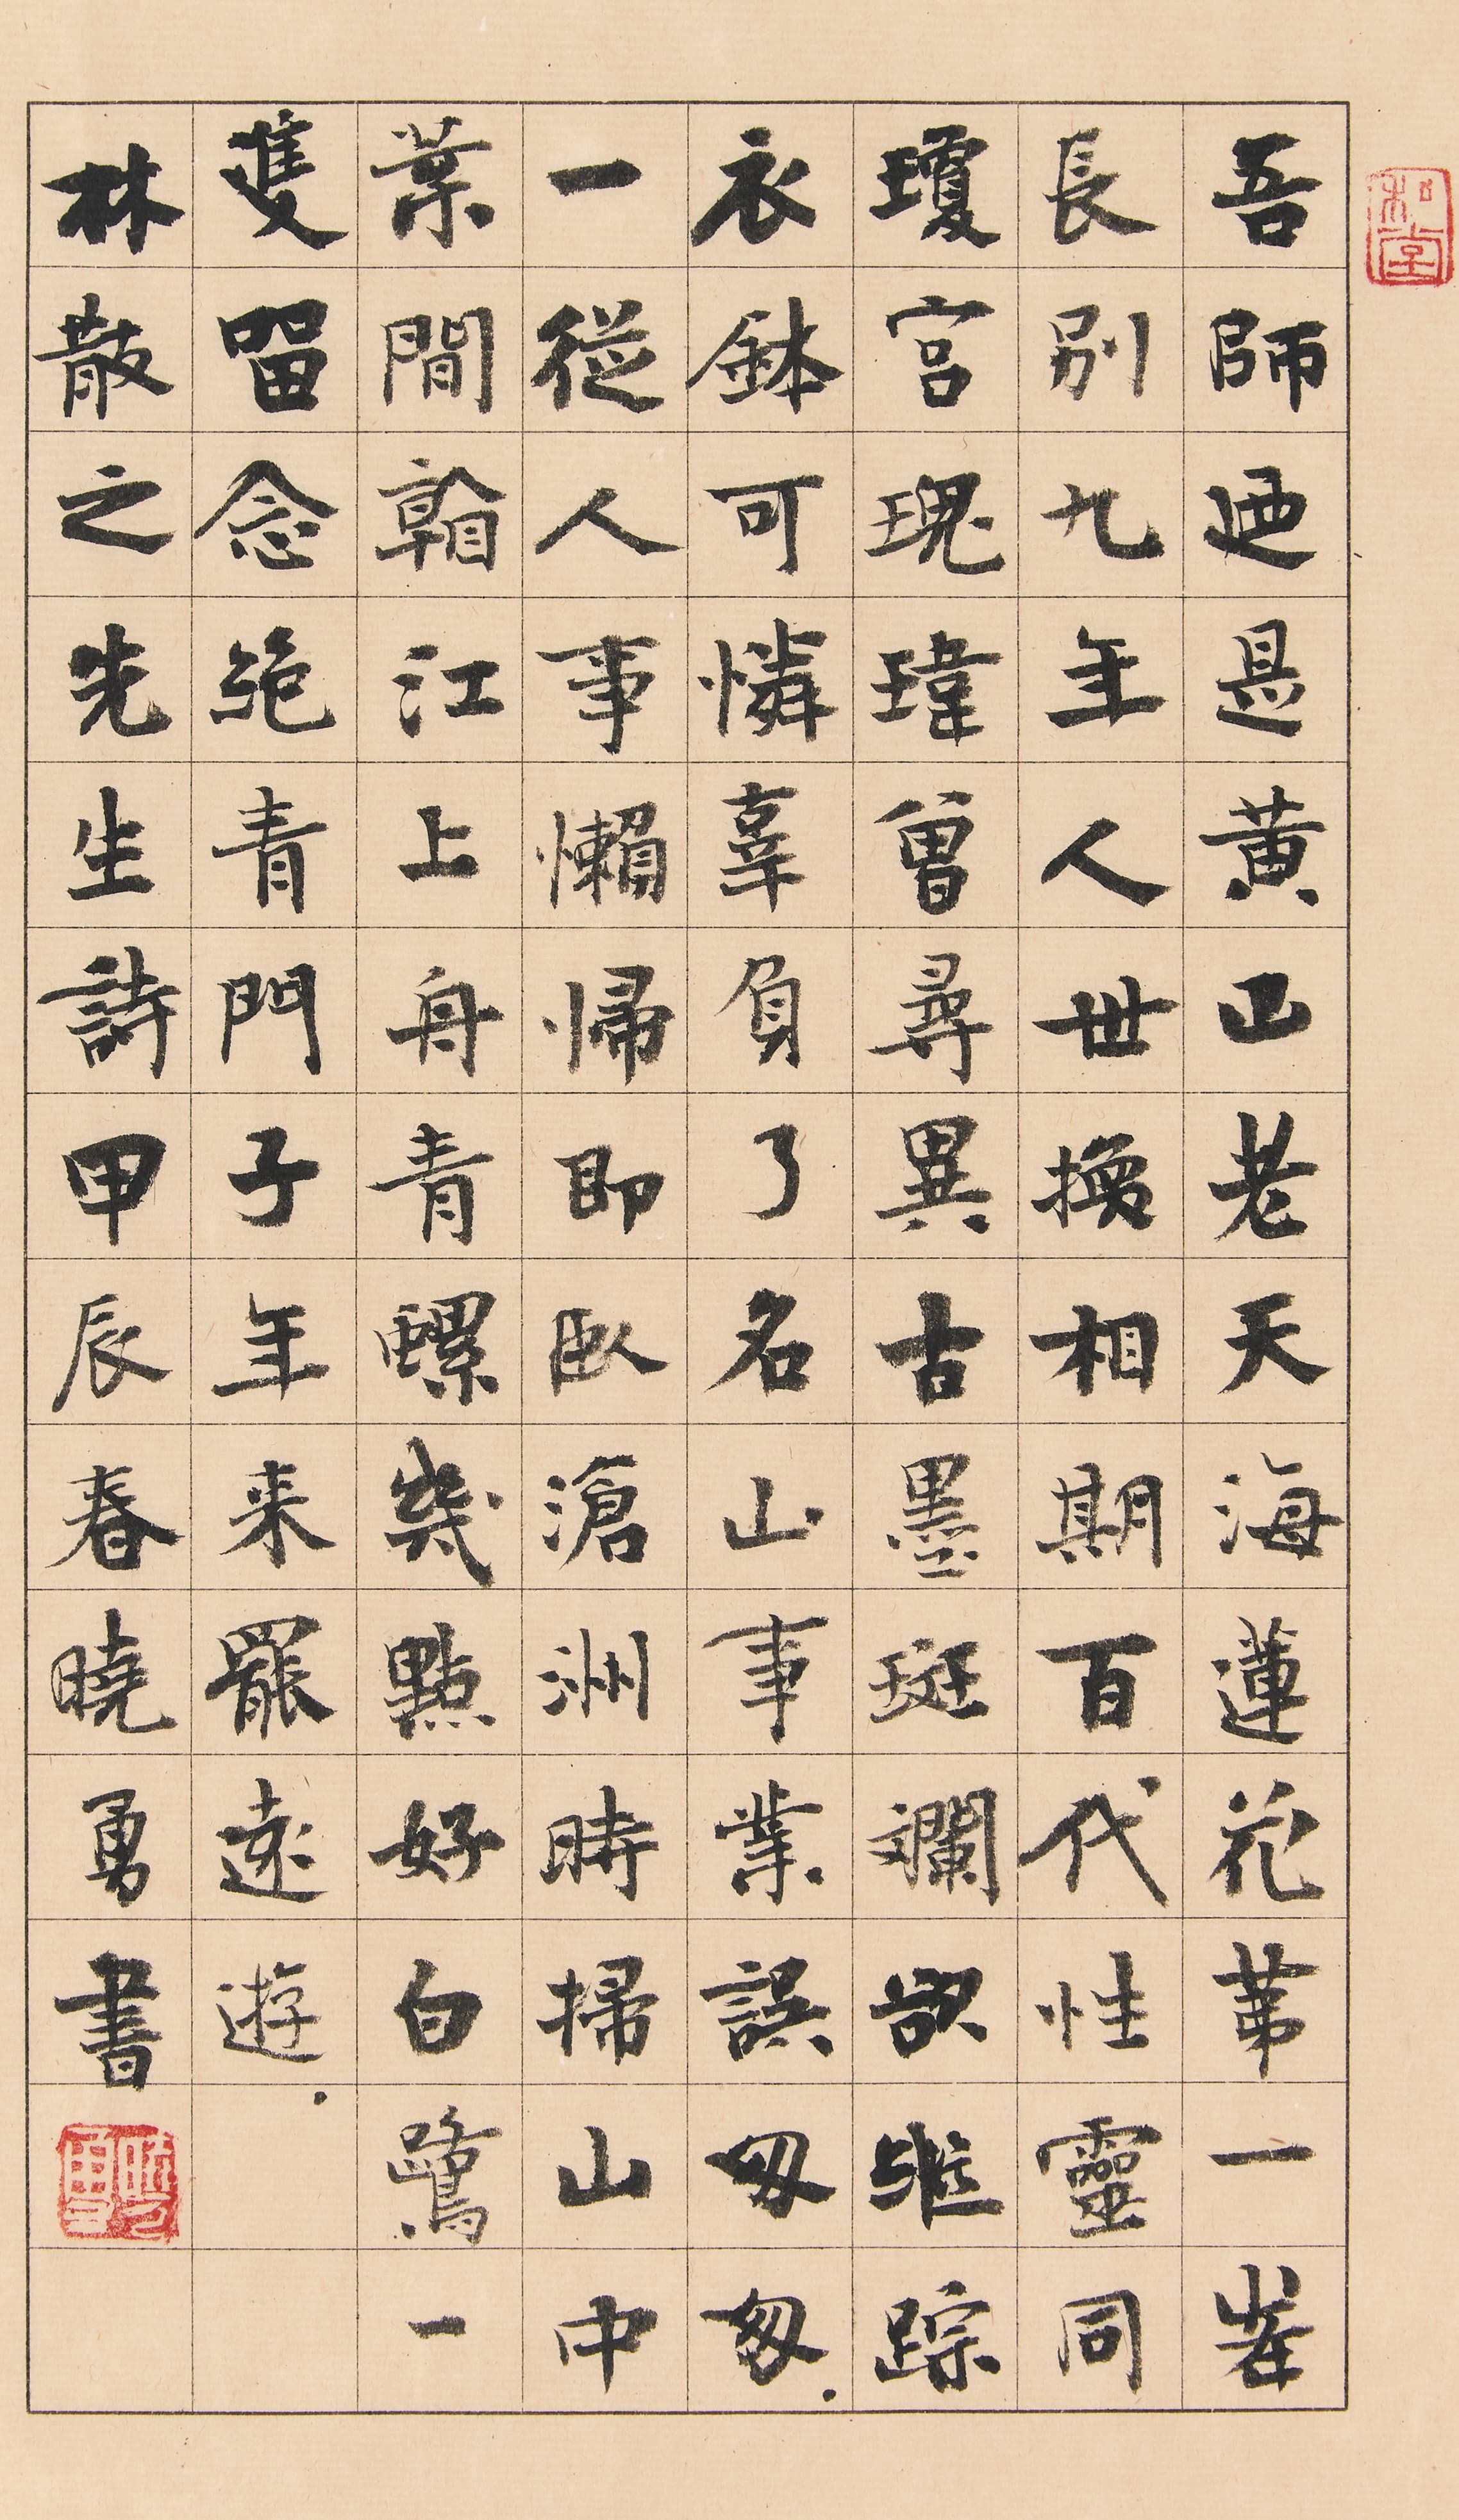 吾師迺是黃山老天海蓮花第一峯
長別九年人世換相期百代性靈同
瓊宮瑰瑋曾尋異古墨斑斕欲継踪
衣鉢可憐辜負了名山事業誤匆匆
一從人事懶帰即臥滄洲時掃山中
葉間看江上舟青螺幾點好白鷺一
隻留念絶青門子年来罷遠遊
林散之先生詩甲辰春曉勇書